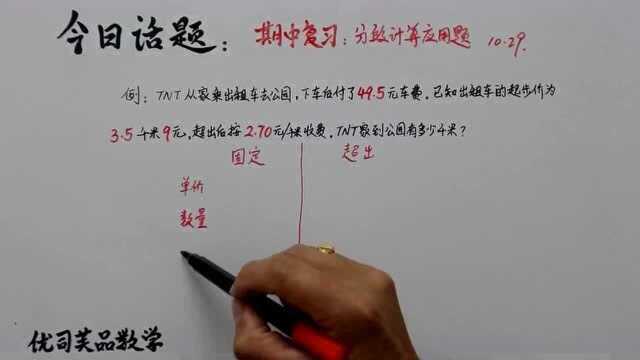 今日话题： 期中复习：分段计算应用题 10.29.
例：TNT从家乘出租车去公园，下车后付了49.5元车费，已知出租车的起步价为
3.5千米9元，超出后按2.70元/千米收费，TNT家到公园有多少千米？
固定 超出
单价
数量
优司芙品数学